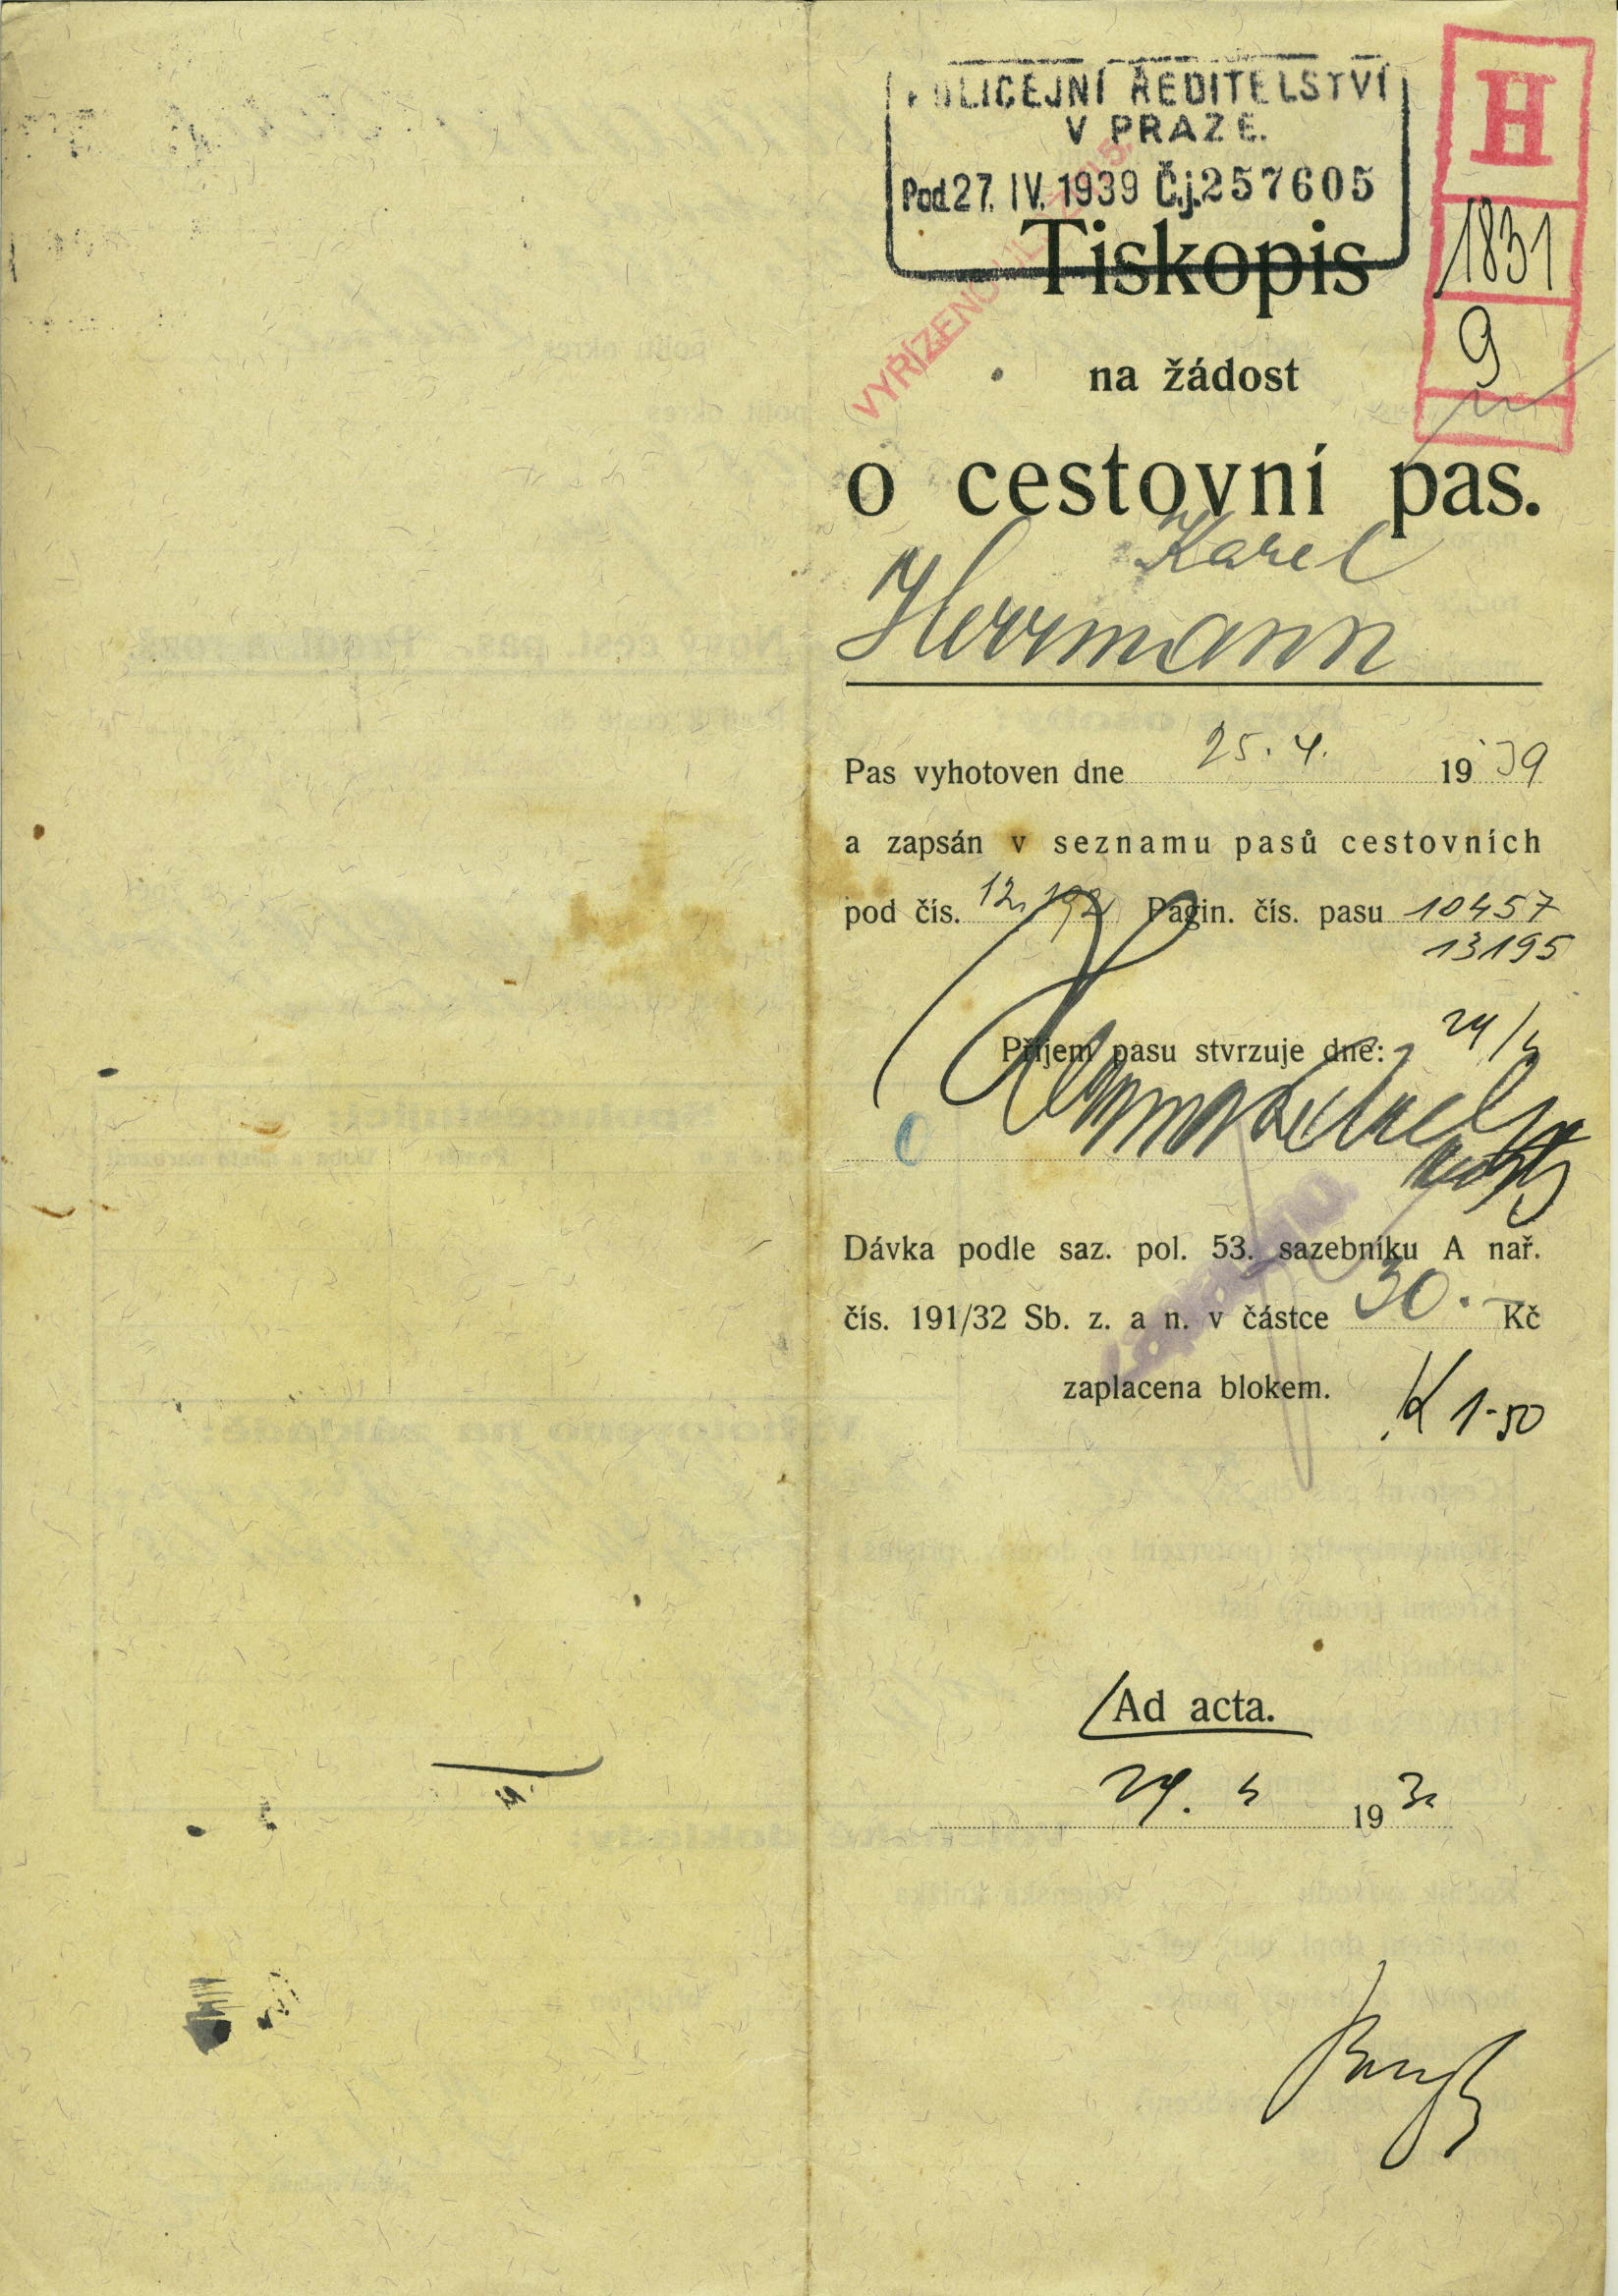 POLICEJNÍ ŘEDITELSTVÍ
V PRAZE.
Pod. 27. IV. 1939 Č.j. 257605
H
1831
9
VYŘÍZENO
Tiskopis
na žádost
o cestovní pas.
Karel
Herrmann
Pas vyhotoven dne 25. 4. 1939
a zapsán v seznamu pasů cestovních
pod čís. Pagin. čís. pasu 10457
13195
Příjem pasu stvrzuje dne:
Dávka podle saz. pol. 53. sazebníku A nař.
čís. 191/32 Sb. z. a n. v částce 30.- Kč
zaplacena blokem.
K 1-50
Ad acta.
19